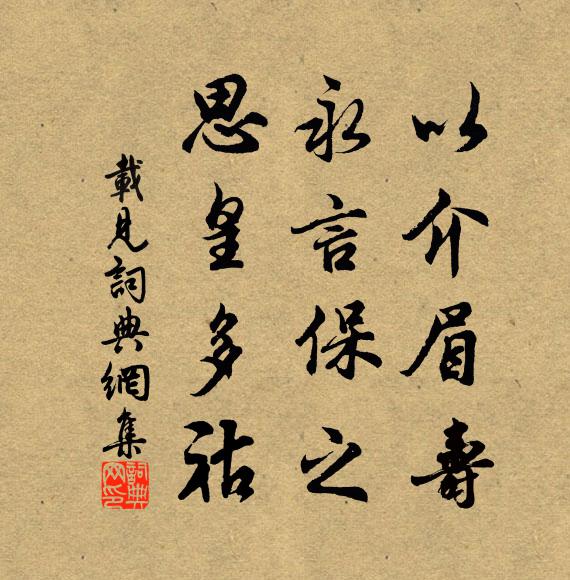 以介眉壽
永言保之
思皇多祜
載見詞典網集
詞典
网印